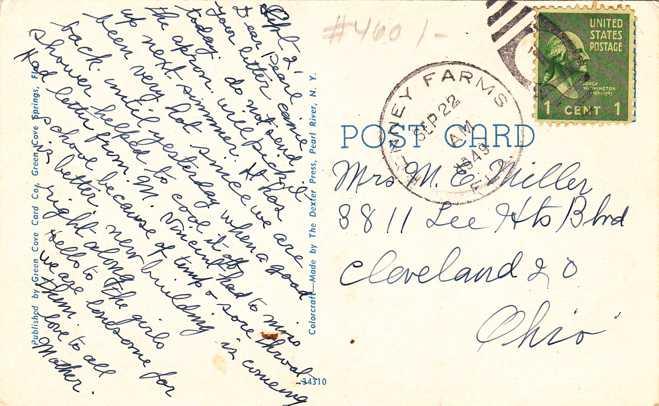 Sept. 21
Dear Pearl came
your letter
today. do not send
the apron will pick it
up next summer. It has
been very hot since we are
back until yesterday when a good
shower helped to cool it off
Had letter from M. Vincent had to miss
school because of temp & sore throat
is better new building is comeing
right along
Hello to the girls
we are lonesome for
them.
love to all
Mother.
Published by Green Cove Card Co., Green Cove Springs, Fla.
Colorcraft—Made by The Dexter Press, Pearl River, N. Y.
34310
#4601-
FARMS
SEP 22
AM
1949
FLA
UNITED
STATES
POSTAGE
1 CENT 1
POST CARD
Mrs M. E. Miller
3811 Lee Hts Blvd
Cleveland 20
Ohio